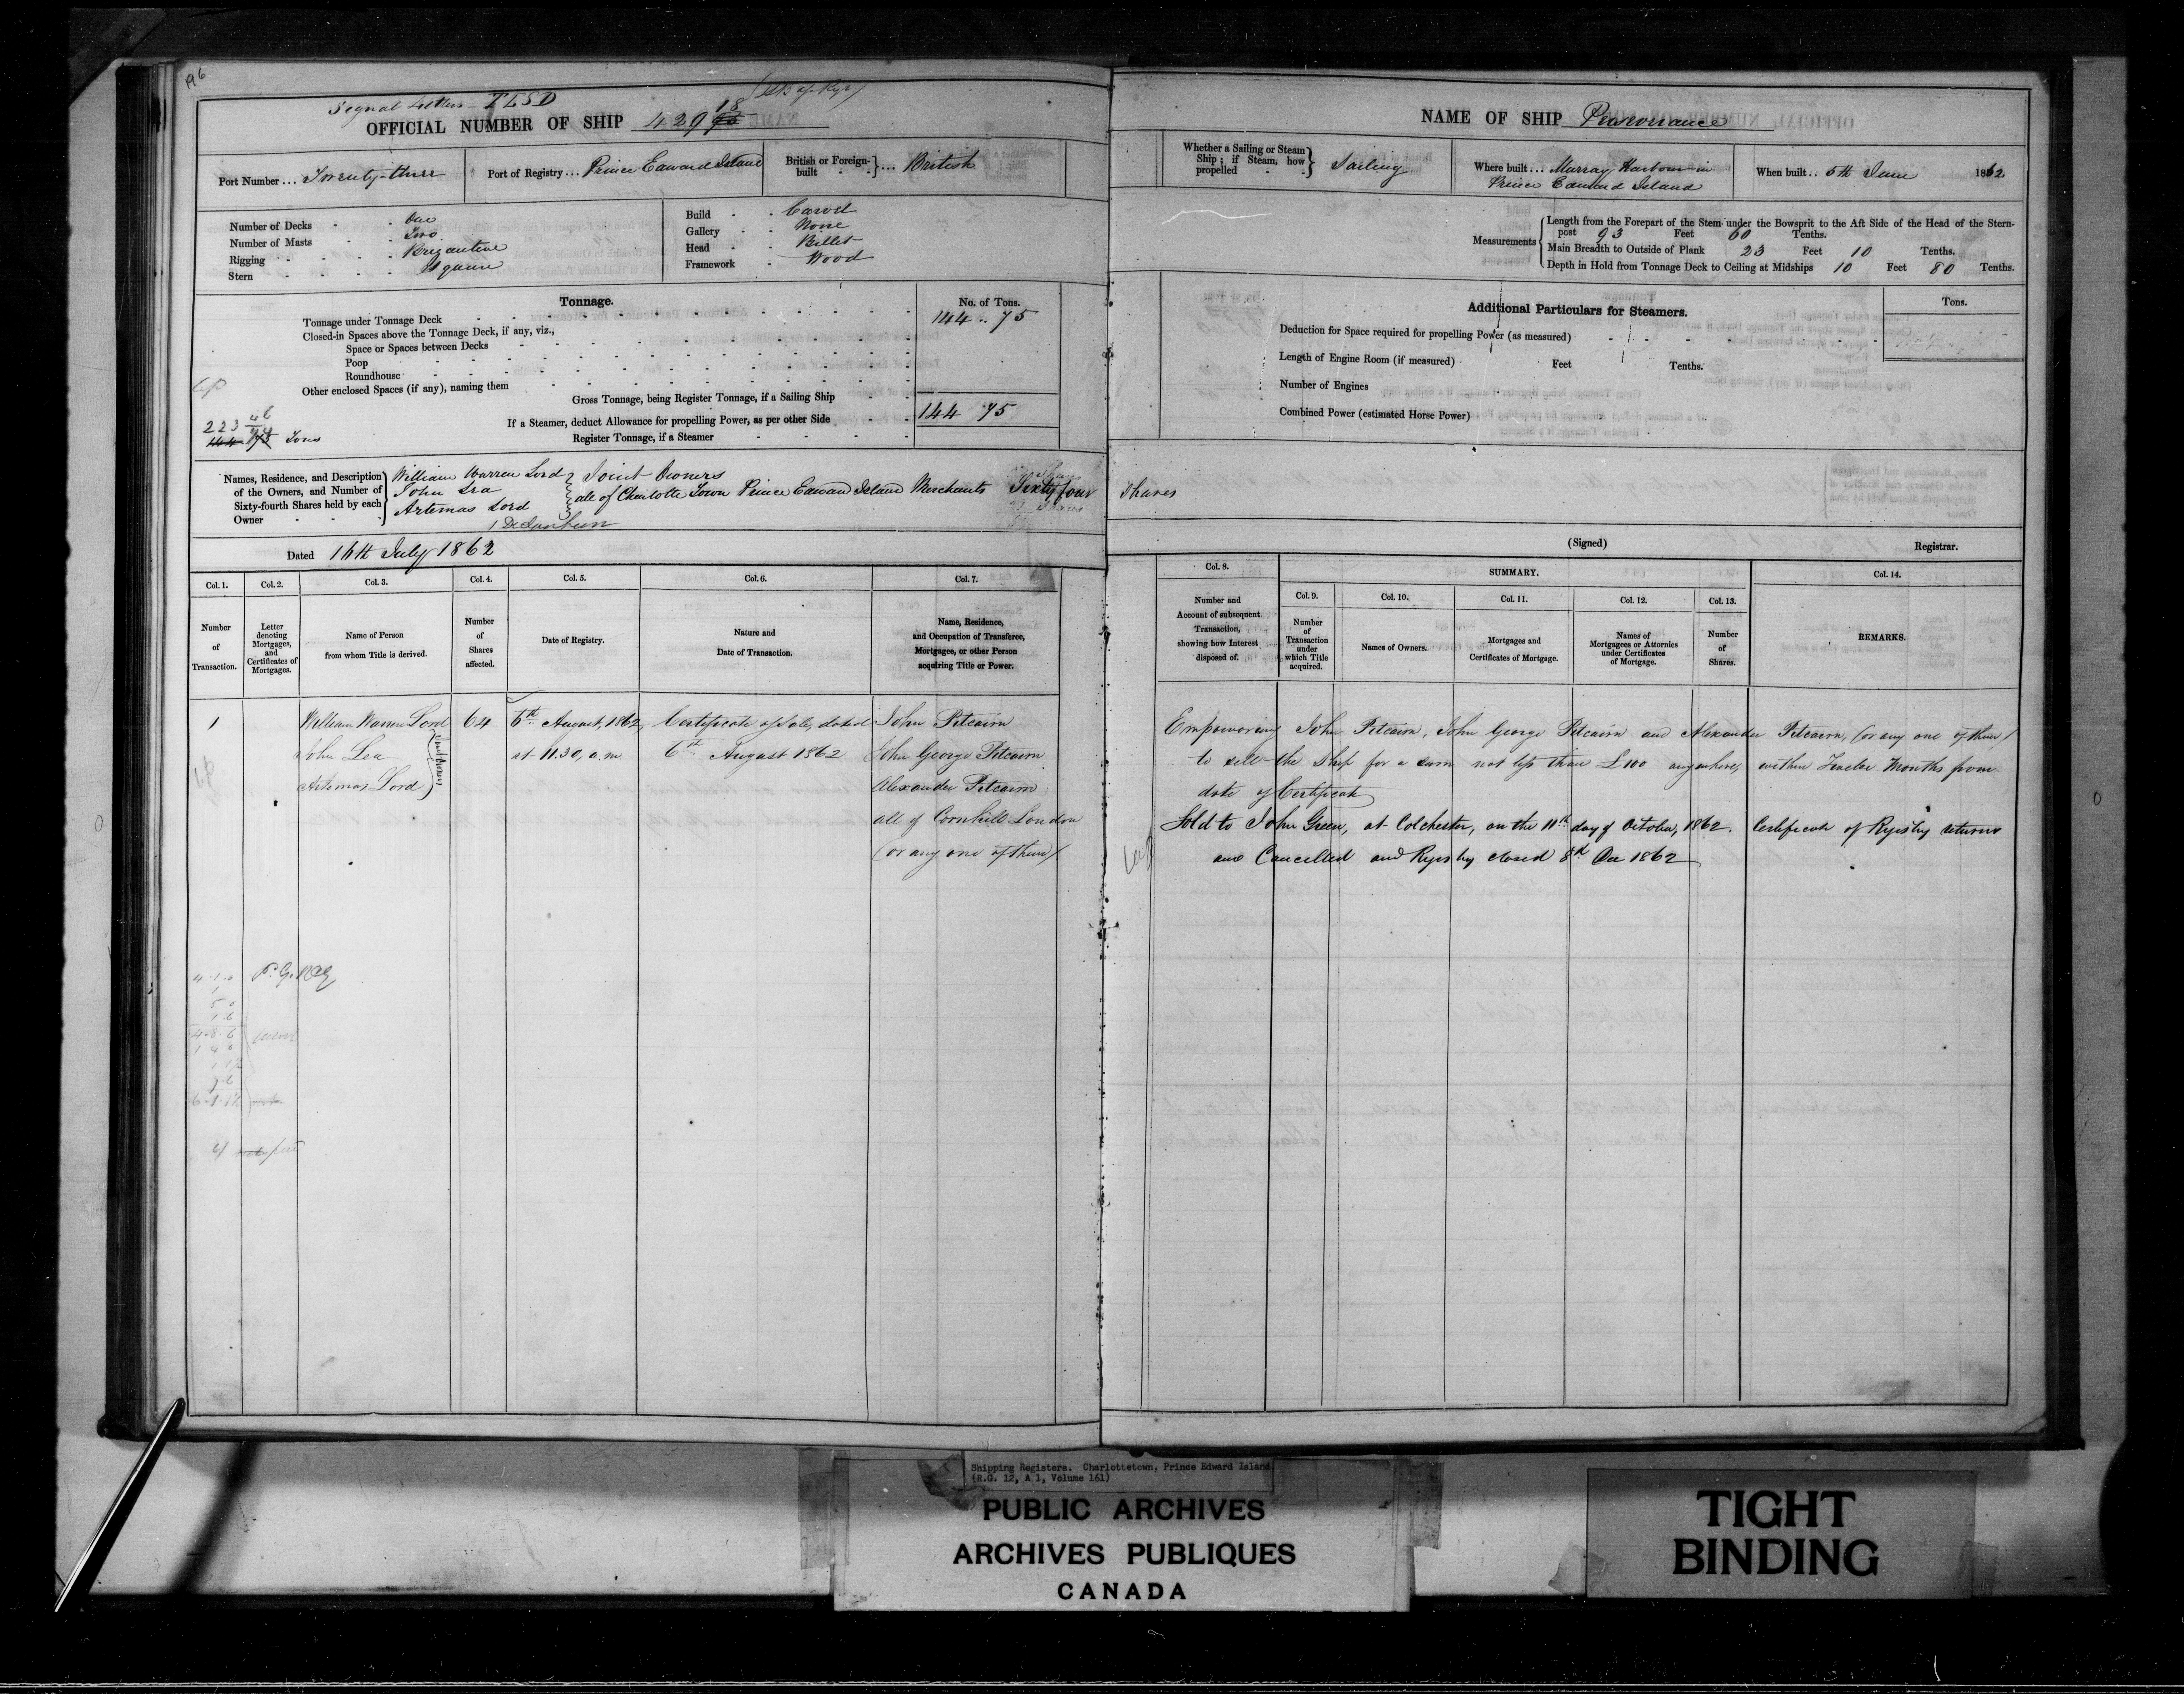 Signal Letters - TLSD
OFFICIAL NUMBER OF SHIP 429 18
Port Number ... Twenty-three
Port of Registry ... Prince Edward Island
British or Foreign-built ... British
Number of Decks - - One
Number of Masts - - Two
Rigging - - - - Brigantine
Stern - - - - Square
Build - - Carvel
Gallery - - None
Head - - Billet
Framework - Wood
Tonnage.
No. of Tons.
Tonnage under Tonnage Deck 144 .. 75
Closed-in Spaces above the Tonnage Deck, if any, viz.,
Space or Spaces between Decks
Poop
Roundhouse
Other enclosed Spaces (if any), naming them
Gross Tonnage, being Register Tonnage, if a Sailing Ship
If a Steamer, deduct Allowance for propelling Power, as per other Side 144 75
Register Tonnage, if a Steamer
223
144 75 Tons
Names, Residence, and Description of the Owners, and Number of Sixty-fourth Shares held by each Owner
William Warren Lord
John Lea
Artemas Lord
Joint Owners
all of Charlotte Town Prince Edward Island Merchants Sixty four Shares
Dated 16th July 1862
Col. 1. Col. 2. Col. 3. Col. 4. Col. 5. Col. 6. Col. 7.
Number of Transaction.
Letter denoting Mortgages, and Certificates of Mortgages.
Name of Person from whom Title is derived.
Number of Shares affected.
Date of Registry.
Nature and Date of Transaction.
Name, Residence, and Occupation of Transferee, Mortgagee, or other Person acquiring Title or Power.
1 William Warren Lord 64 6th August, 1862, Certificate of Sale, dated John Pitcairn
John Lea at 11.30, a.m. 6th August 1862 John George Pitcairn
Artemas Lord Alexander Pitcairn
Joint Owners
all of Cornhill London
(or any one of them)
NAME OF SHIP
Whether a Sailing or Steam Ship ; if Steam, how propelled - - Sailing
Where built ... Murray Harbour in
Prince Edward Island
When built .. 5th June 1862
Measurements
Length from the Forepart of the Stem under the Bowsprit to the Aft Side of the Head of the Stern-
post 93 Feet 60 Tenths.
Main Breadth to Outside of Plank 23 Feet 10 Tenths.
Depth in Hold from Tonnage Deck to Ceiling at Midships 10 Feet 80 Tenths.
Additional Particulars for Steamers.
Tons.
Deduction for Space required for propelling Power (as measured)
Length of Engine Room (if measured) Feet Tenths.
Number of Engines
Combined Power (estimated Horse Power)
(Signed) Registrar.
Col. 8. SUMMARY. Col. 14.
Col. 9. Col. 10. Col. 11. Col. 12. Col. 13.
Number and Account of subsequent Transaction, showing how Interest disposed of.
Number of Transaction under which Title acquired.
Names of Owners.
Mortgages and Certificates of Mortgage.
Names of Mortgagees or Attornies under Certificates of Mortgage.
Number of Shares.
REMARKS.
Empowering John Pitcairn, John George Pitcairn and Alexander Pitcairn, (or any one of them)
to sell the Ship for a sum not less than £100 anywhere, within Twelve Months from
date of Certificate
Sold to John Green, at Colchester, on the 11th day of October, 1862. Certificate of Registry returned
and Cancelled and Registry closed 8th Dec 1862
Shipping Registers. Charlottetown, Prince Edward Island.
(R.G. 12, A 1, Volume 161)
PUBLIC ARCHIVES
ARCHIVES PUBLIQUES
CANADA
TIGHT
BINDING